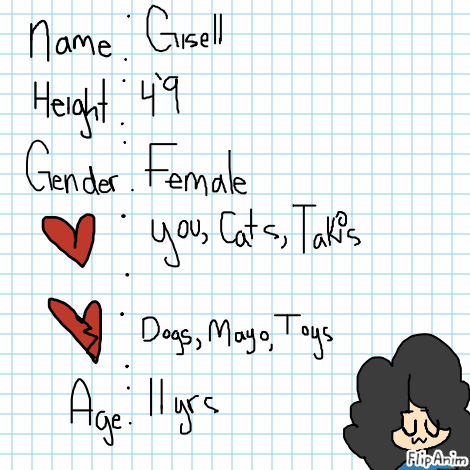 Name : Gisell
Height : 4'9
Gender : Female
: you, Cats, Takis
: Dogs, Mayo, Toys
Age : 11 yrs
FlipAnim